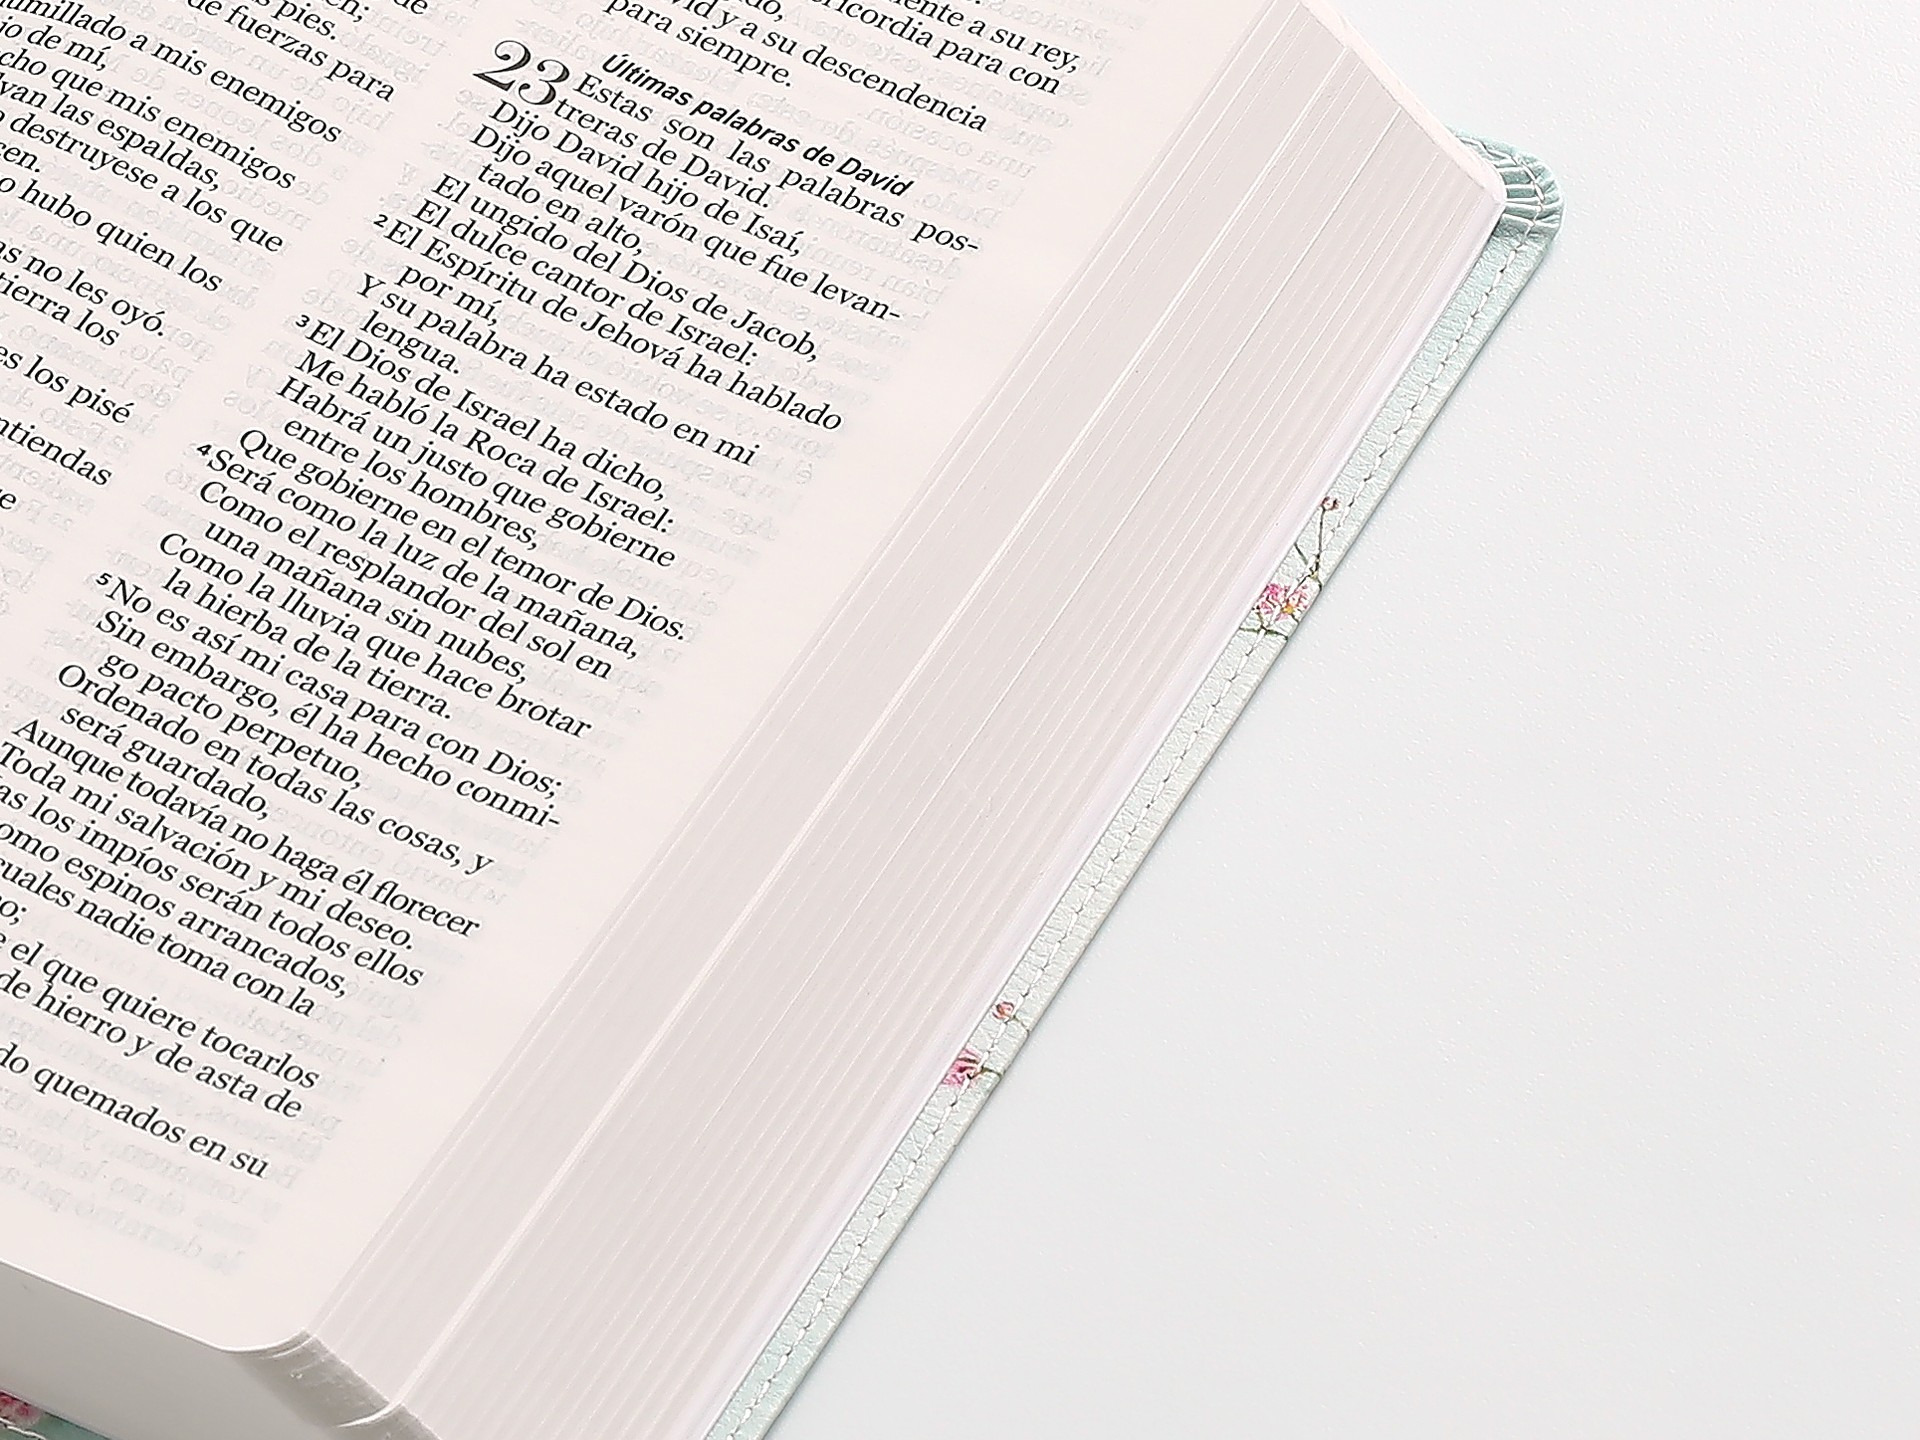 de
pies.
de fuerzas para
humillado a mis enemigos
de mí,
que mis enemigos
las espaldas,
destruyese a los que
hubo quien los
no les oyó.
tierra los
los pisé
mente a su rey,
misericordia para con
y a su descendencia
para siempre.
Últimas palabras de David
23 Estas son las palabras pos-
treras de David.
Dijo David hijo de Isaí,
Dijo aquel varón que fue levan-
tado en alto,
El ungido del Dios de Jacob,
El dulce cantor de Israel:
2 El Espíritu de Jehová ha hablado
por mí,
Y su palabra ha estado en mi
lengua.
3 El Dios de Israel ha dicho,
Me habló la Roca de Israel:
Habrá un justo que gobierne
entre los hombres,
Que gobierne en el temor de Dios.
4 Será como la luz de la mañana,
Como el resplandor del sol en
una mañana sin nubes,
Como la lluvia que hace brotar
la hierba de la tierra.
5 No es así mi casa para con Dios;
Sin embargo, él ha hecho conmi-
go pacto perpetuo,
Ordenado en todas las cosas, y
será guardado,
Aunque todavía no haga él florecer
Toda mi salvación y mi deseo.
los impíos serán todos ellos
como espinos arrancados,
cuales nadie toma con la
el que quiere tocarlos
de hierro y de asta de
quemados en su